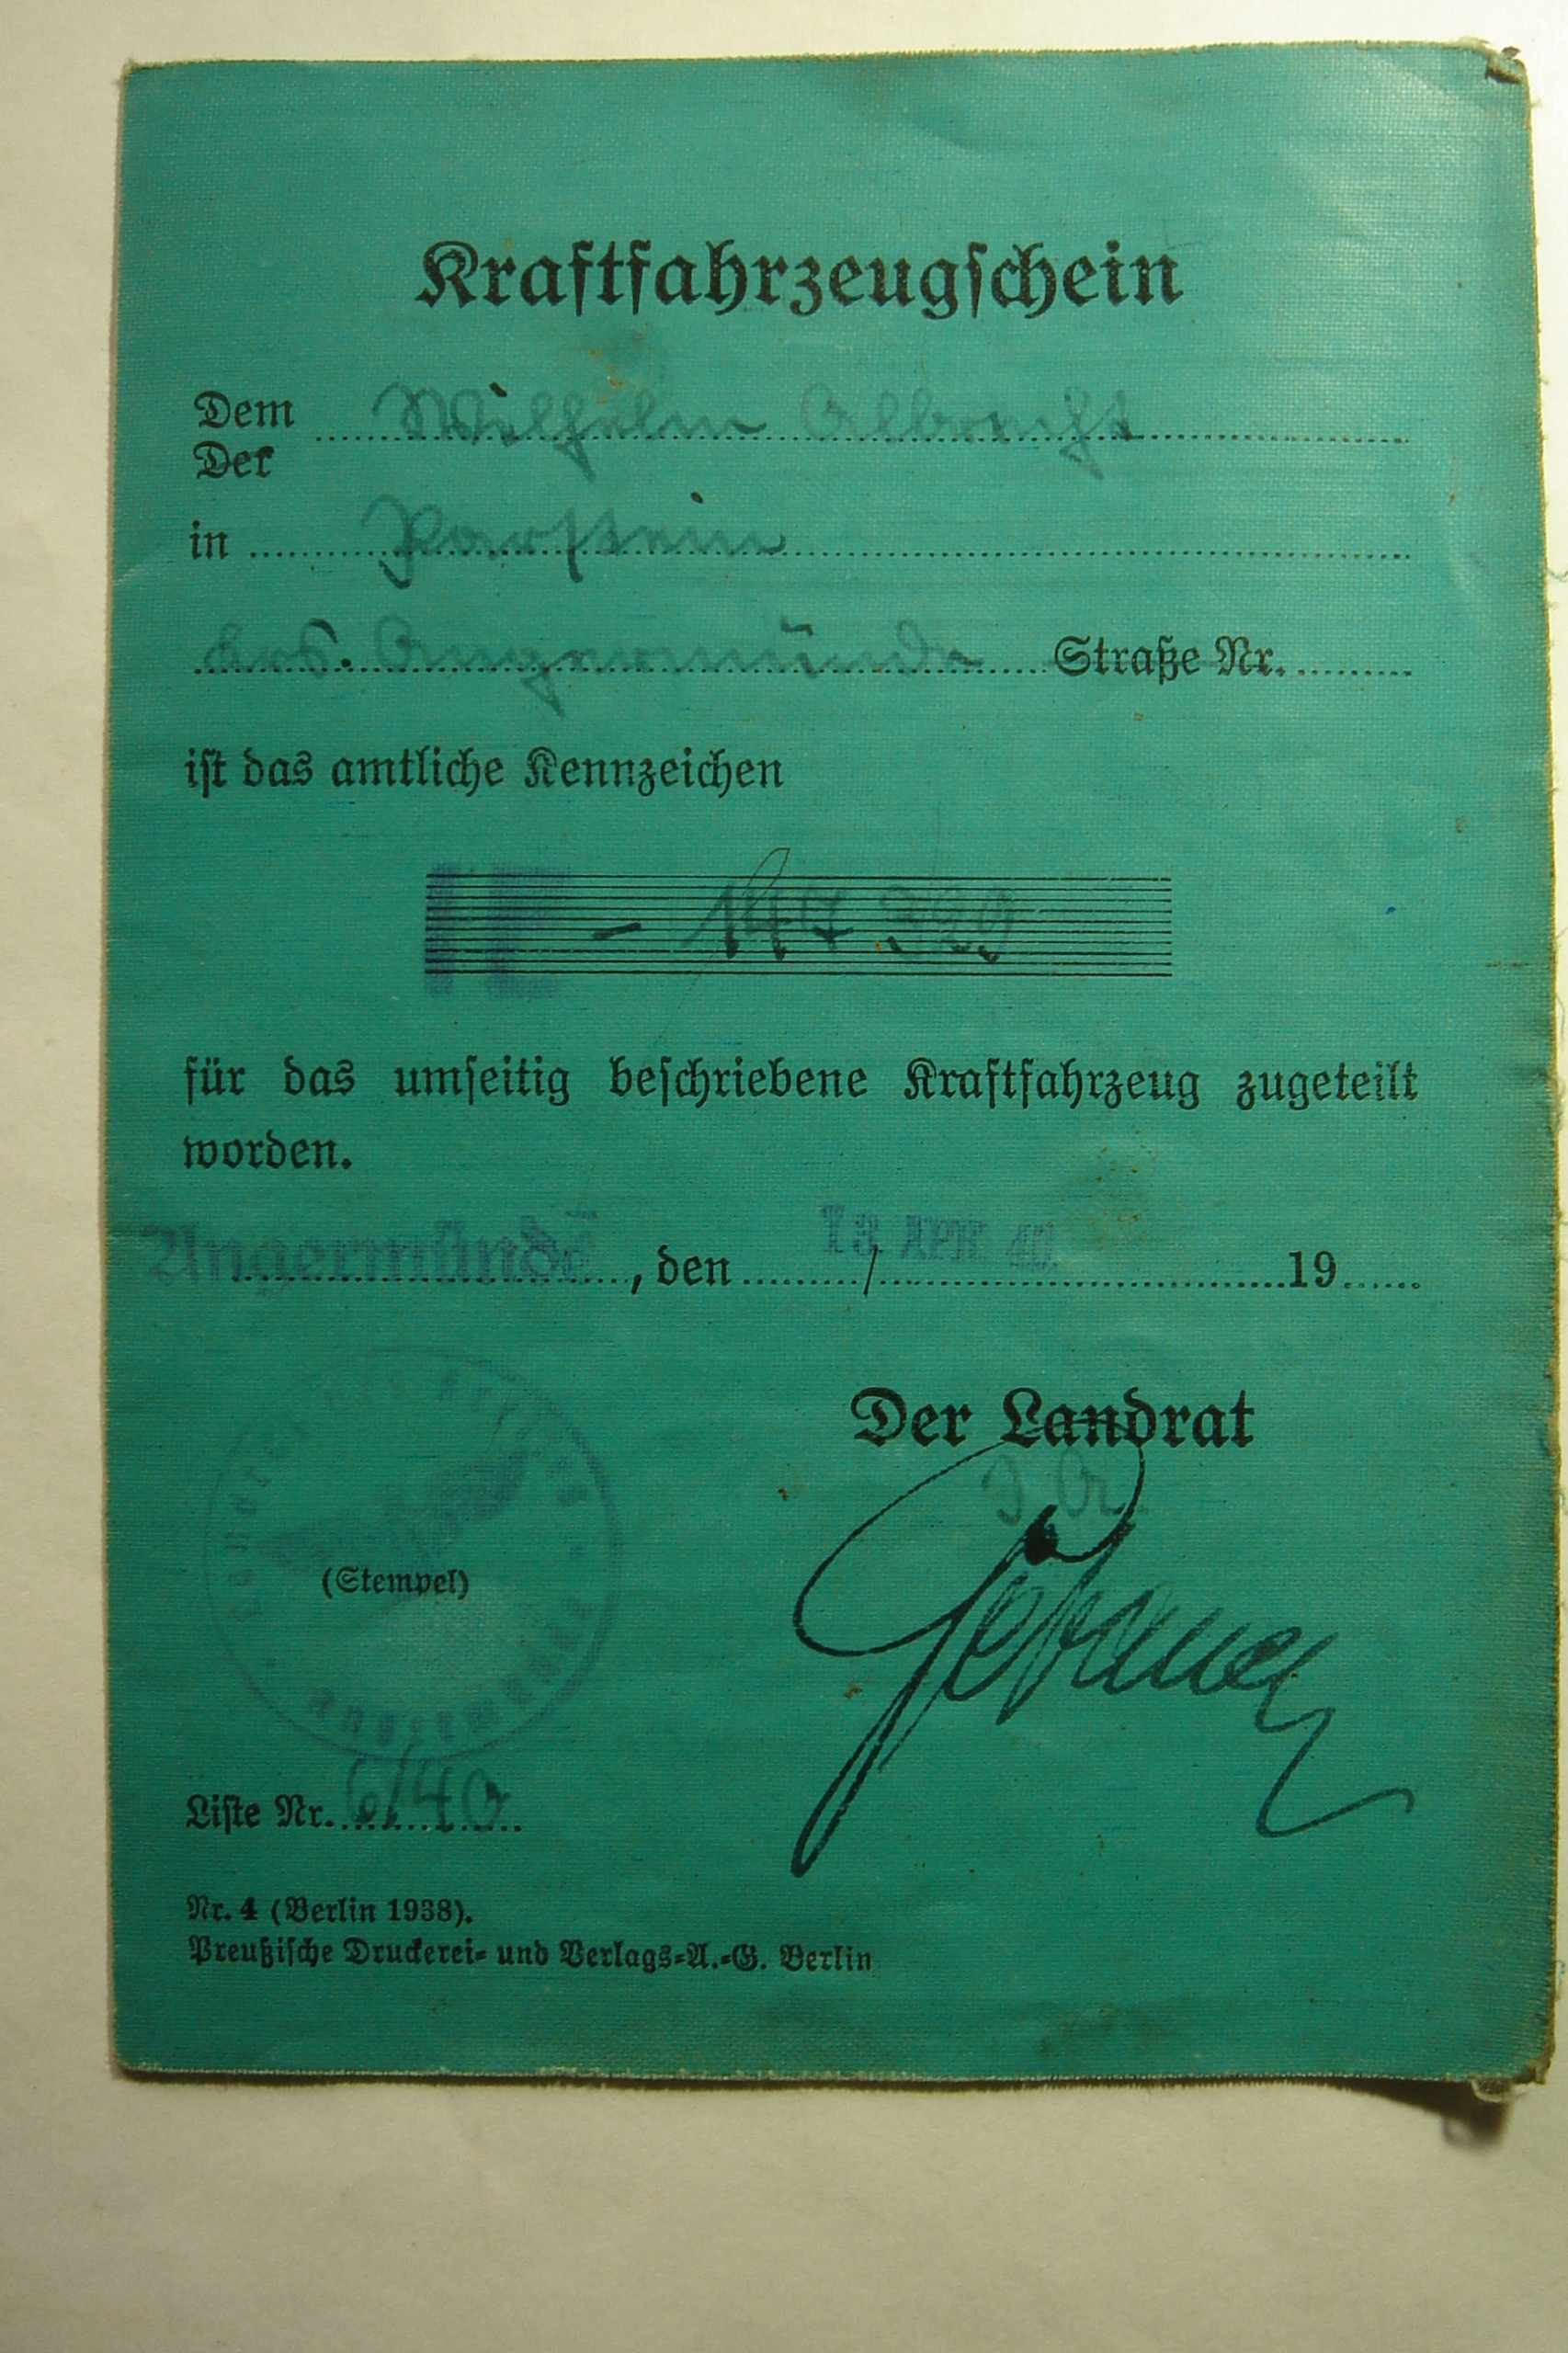 Kraftfahrzeugschein
Dem Wilhelm Albrecht
Der
in Parstein
Krs. Angermünde Straße Nr.
ist das amtliche Kennzeichen
IE - 147
für das umseitig beschriebene Kraftfahrzeug zugeteilt
worden.
Angermünde, den 13. APR. 40. 19
Der Landrat
J. A.
(Stempel)
Angermünde
Liste Nr. 6/40
Nr. 4 (Berlin 1938).
Preußische Druckerei- und Verlags-A.-G. Berlin